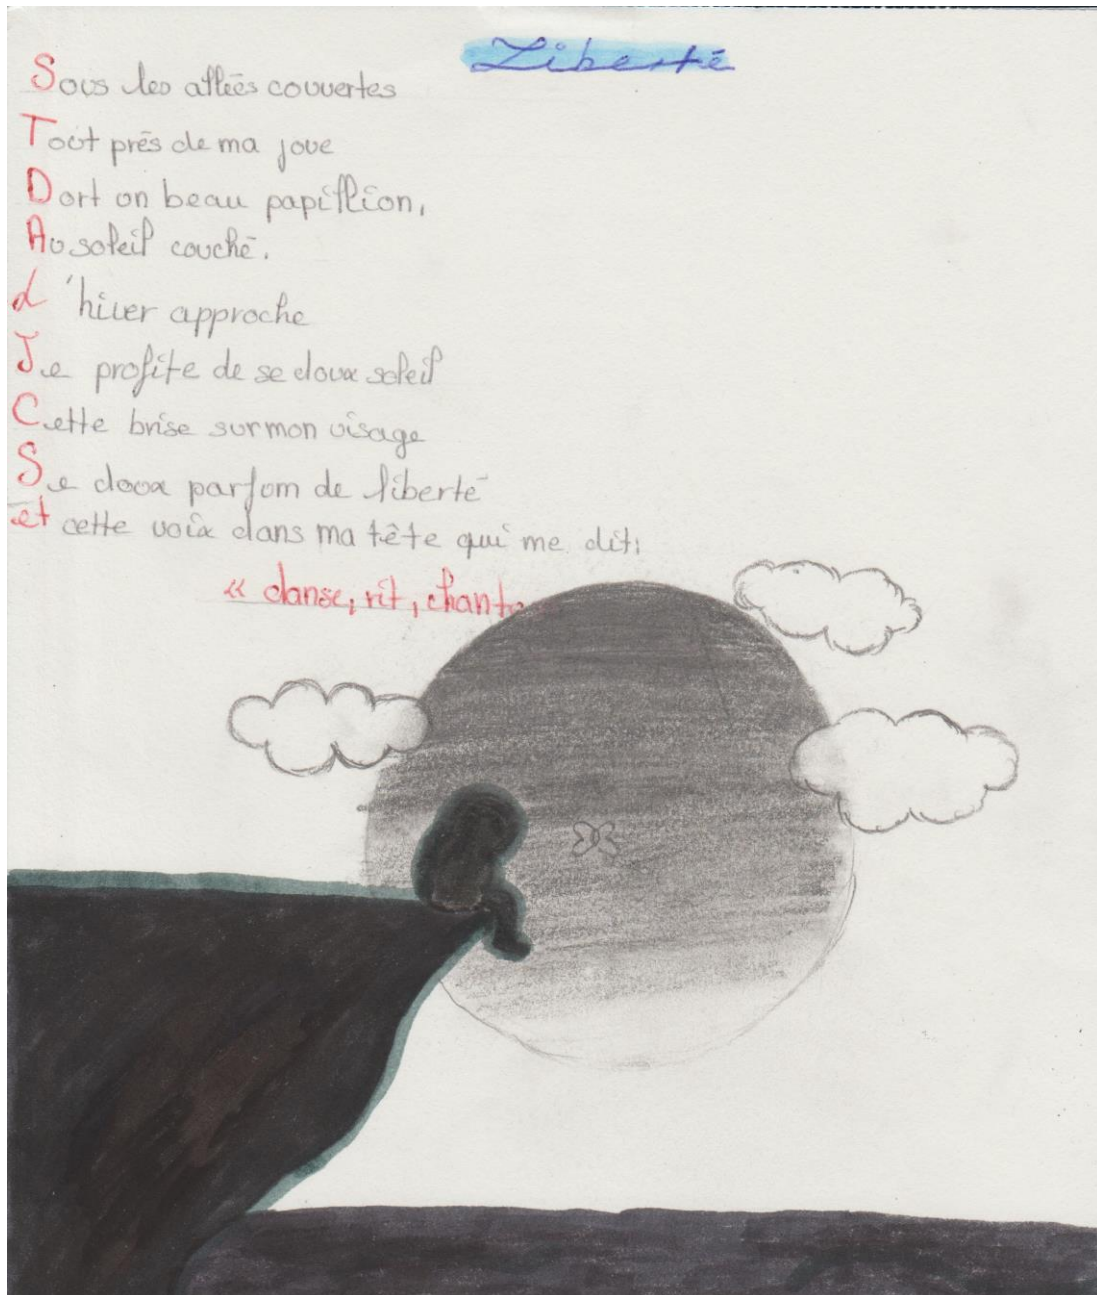 Liberté
Sous les allées couvertes
Tout prés de ma joue
Dort un beau papillion,
Au soleil couché.
L'hiver approche
Je profite de se doux soleil
Cette brise sur mon visage
Se doux parfum de liberté
et cette voix dans ma tête qui me dit:
« danse, rit, chante